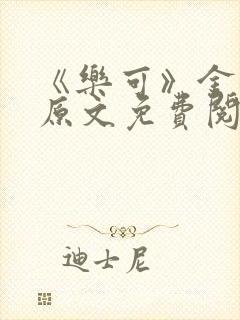 《樂可》金
原文免費閱
迪士尼